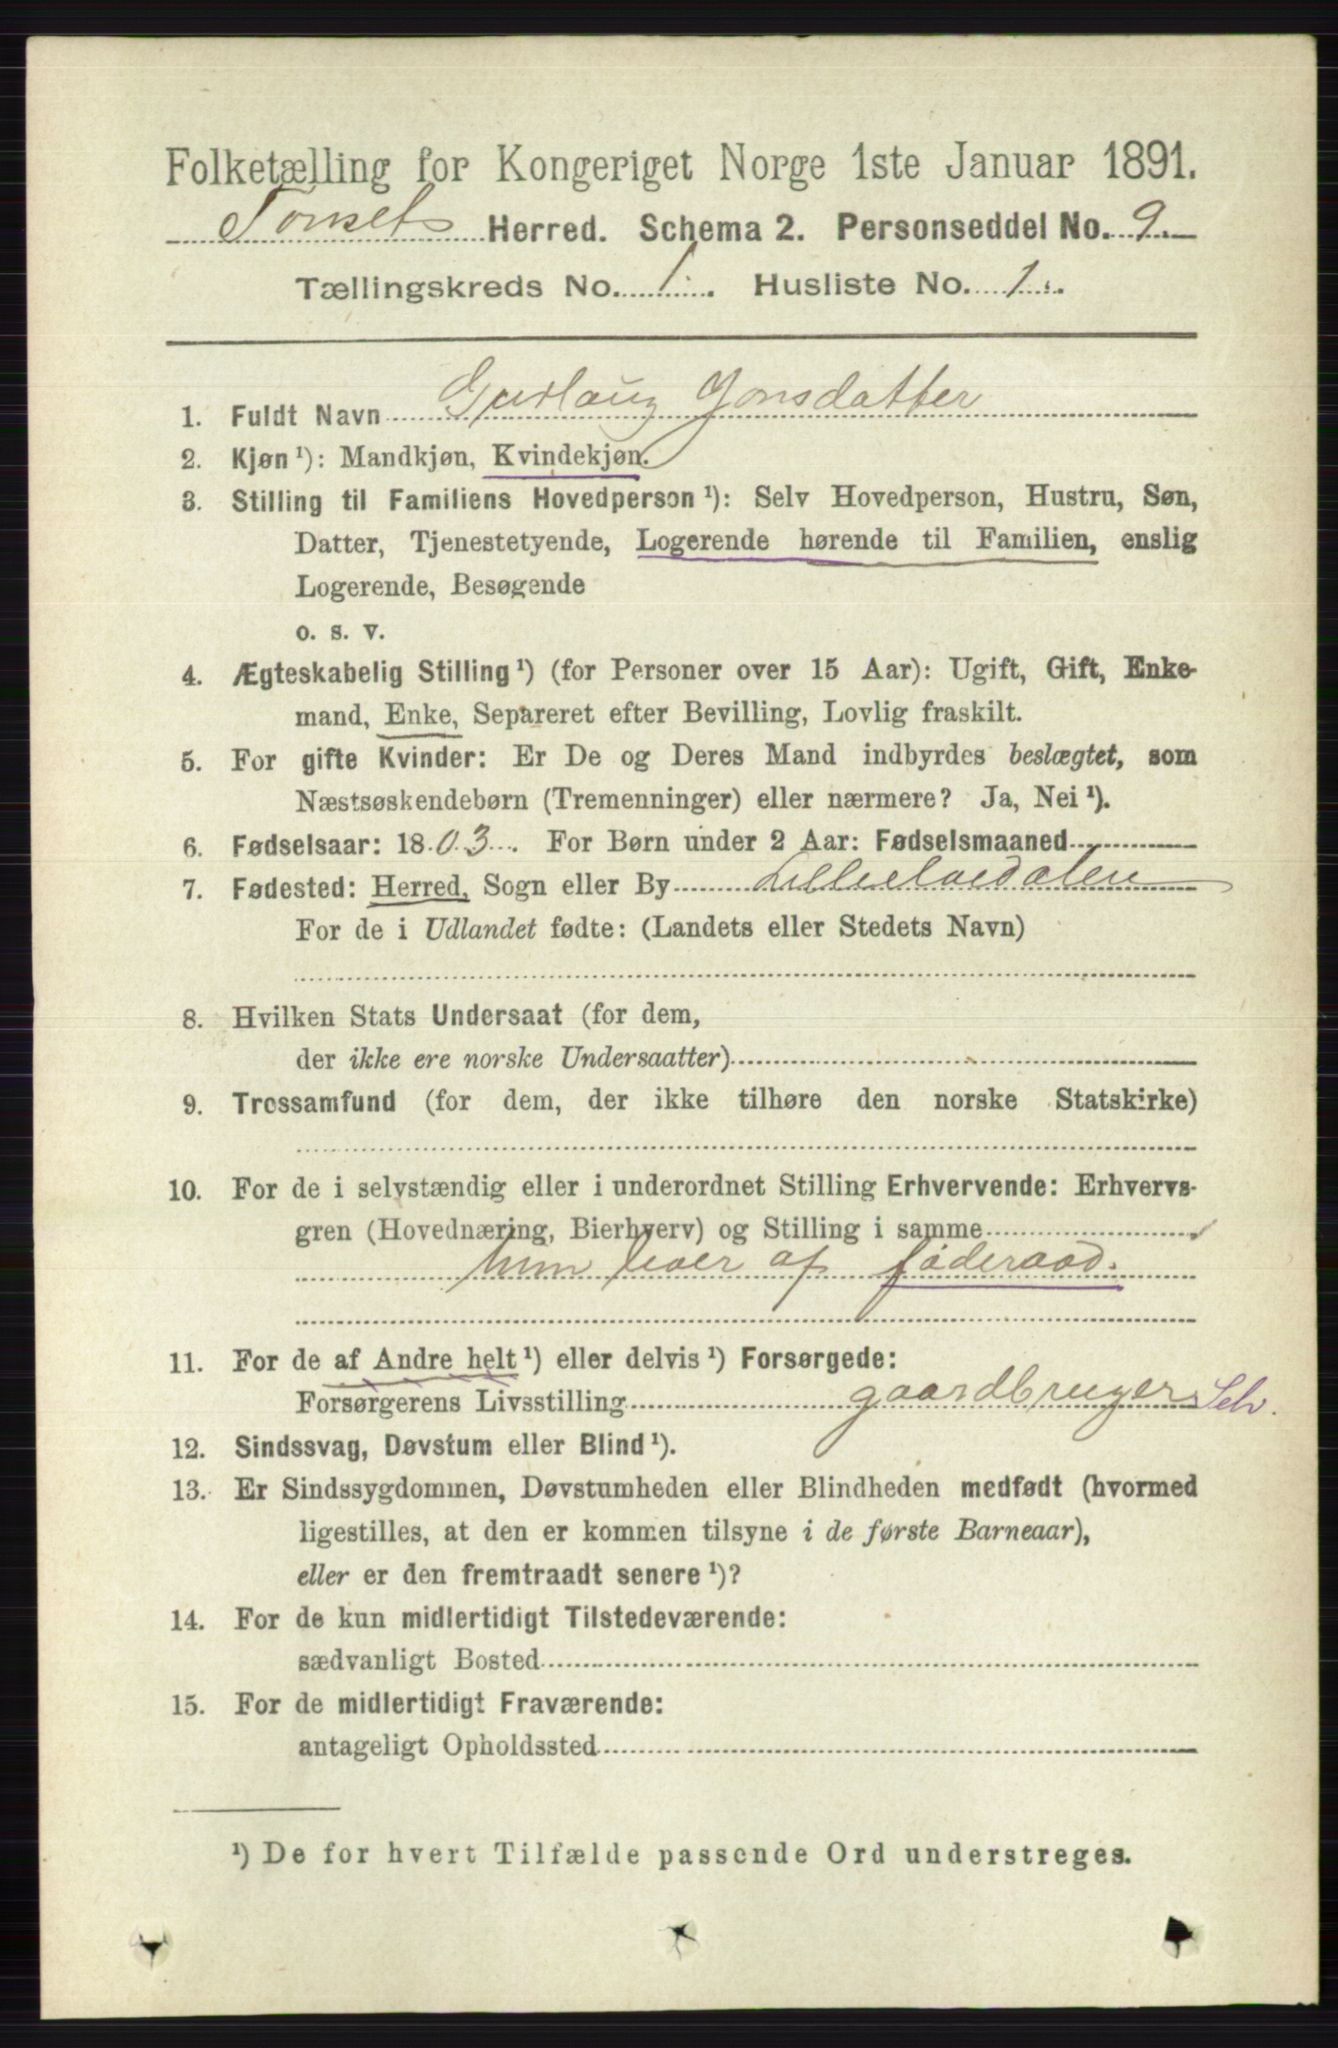 Folketælling for Kongeriget Norge 1ste Januar 1891.
Tønsets Herred. Schema 2. Personseddel No. 9.
Tællingskreds No. 1. Husliste No. 1.
1. Fuldt Navn Gurlaug Jonsdatter
2. Kjøn ¹): Mandkjøn, Kvindekjøn.
3. Stilling til Familiens Hovedperson ¹): Selv Hovedperson, Hustru, Søn,
Datter, Tjenestetyende, Logerende hørende til Familien, enslig
Logerende, Besøgende
o. s. v.
4. Ægteskabelig Stilling ¹) (for Personer over 15 Aar): Ugift, Gift, Enke-
mand, Enke, Separeret efter Bevilling, Lovlig fraskilt.
5. For gifte Kvinder: Er De og Deres Mand indbyrdes beslægtet, som
Næstsøskendebørn (Tremenninger) eller nærmere? Ja, Nei ¹).
6. Fødselsaar: 1803. For Børn under 2 Aar: Fødselsmaaned
7. Fødested: Herred, Sogn eller By Lilleelvedalen
For de i Udlandet fødte: (Landets eller Stedets Navn)
8. Hvilken Stats Undersaat (for dem,
der ikke ere norske Undersaatter)
9. Trossamfund (for dem, der ikke tilhøre den norske Statskirke)
10. For de i selvstændig eller i underordnet Stilling Erhvervende: Erhvervs-
gren (Hovednæring, Bierhverv) og Stilling i samme
hun lever af føderaad.
11. For de af Andre helt ¹) eller delvis ¹) Forsørgede:
Forsørgerens Livsstilling gaardbruger Selv.
12. Sindssvag, Døvstum eller Blind ¹).
13. Er Sindssygdommen, Døvstumheden eller Blindheden medfødt (hvormed
ligestilles, at den er kommen tilsyne i de første Barneaar),
eller er den fremtraadt senere ¹)?
14. For de kun midlertidigt Tilstedeværende:
sædvanligt Bosted
15. For de midlertidigt Fraværende:
antageligt Opholdssted
¹) De for hvert Tilfælde passende Ord understreges.